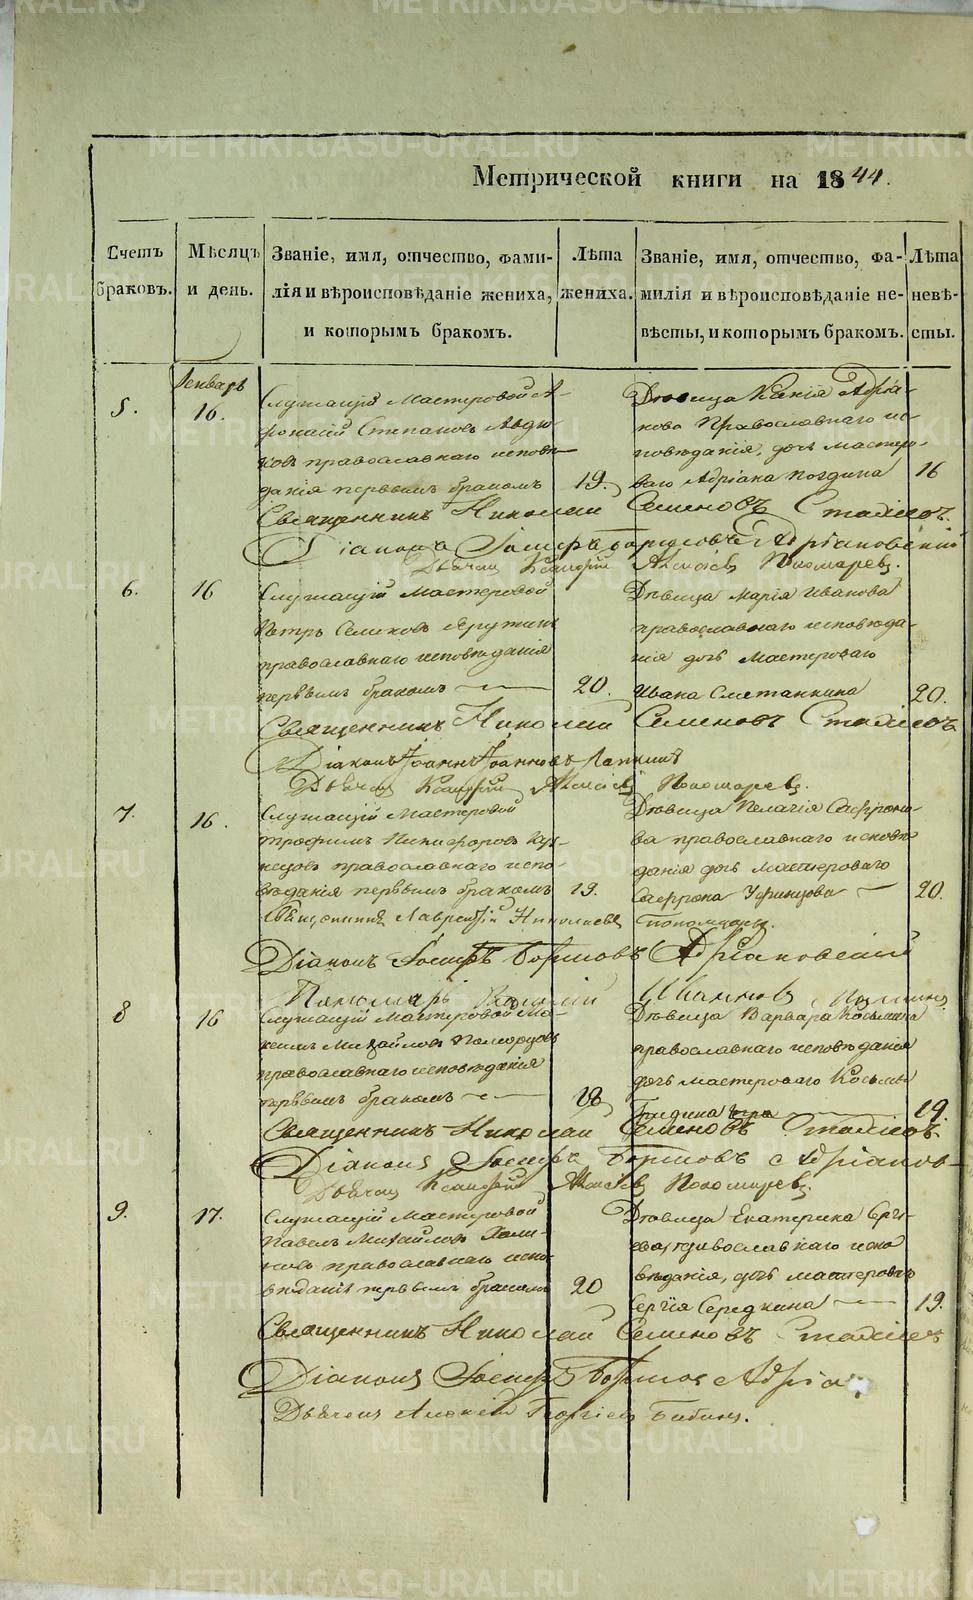 Метрической книги на 1844.
Счетъ браковъ.
Мѣсяцъ и день.
Званіе, имя, отчество, фами-
лія и вѣроисповѣданіе жениха,
и которымъ бракомъ.
Лѣта жениха.
Званіе, имя, отчество, фа-
милія и вѣроисповѣданіе не-
вѣсты, и которымъ бракомъ.
Лѣта невѣ-
сты.
Генварь
5.
16.
Служащій Мастеровой А-
фонасій Степановъ
православнаго исповѣ-
данія первымъ бракомъ
19.
Дѣвица Ксенія Адріа-
нова Православнаго ис-
повѣданія, дочь мастеро-
ваго Адріана
16
Священникъ Николай Семеновъ
Діаконъ Іосифъ Адріановскій
Дьячекъ Алексіевъ Пономаревъ.
6.
16
Служащій Мастеровой
Петръ
православнаго исповѣданія
первымъ бракомъ
20.
Дѣвица Марія Иванова
православнаго исповѣда-
нія дочь Мастероваго
Ивана Сметанкина
20.
Священникъ Николай Семеновъ
Діаконъ Іоаннъ Іоанновъ Лапинъ
Дьячекъ Алексіевъ Пономаревъ.
7.
16.
Служащій Мастеровой
Трофимъ Никифоровъ Куз-
нецовъ православнаго испо-
вѣданія первымъ бракомъ
19.
Дѣвица Пелагія Сафроно-
ва православнаго исповѣ-
данія дочь Мастероваго
Сафрона Уфинцова
20.
Священникъ Лаврентій Николаевъ
Діаконъ Іосифъ Адріановскій
Пономарь Василій Ивановъ
8
16
Служащій Мастеровой Ма-
ксимъ Михайловъ
православнаго исповѣданія
первымъ бракомъ
18
Дѣвица Варвара Косьмина
православнаго исповѣданія
дочь мастероваго Косьмы
19.
Священникъ Николай Семеновъ
Діаконъ Іосифъ
Дьячекъ Алексіевъ Пономаревъ.
9.
17.
Служащій Мастеровой
Павелъ Михайловъ
православнаго испо-
вѣданія первымъ бракомъ
20
Дѣвица Екатерина Сергі-
ева православнаго испо
вѣданія, дочь мастероваго
Сергія Середкина
19.
Священникъ Николай Семеновъ
Діаконъ Іосифъ
Дьячекъ Алексій Георгіевъ Бабинъ.
METRIKI.GASO-URAL.RU